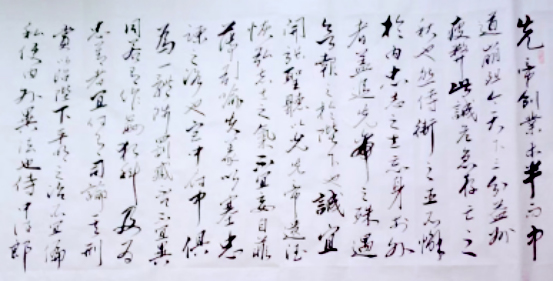 先帝創業未半而中
道崩殂今天下三分益州
疲弊此誠危急存亡之
秋也然侍衛之臣不懈
於內忠志之士忘身於外
者蓋追先帝之殊遇
欲報之於陛下也誠宜
開張聖聽以光先帝遺德
恢弘志士之氣不宜妄自菲
薄引喻失義以塞忠
諫之路也宮中府中俱
為一體陟罰臧否不宜異
同若有作奸犯科及為
忠善者宜付有司論其刑
賞以昭陛下平明之治不宜偏
私使內外異法也侍中侍郎